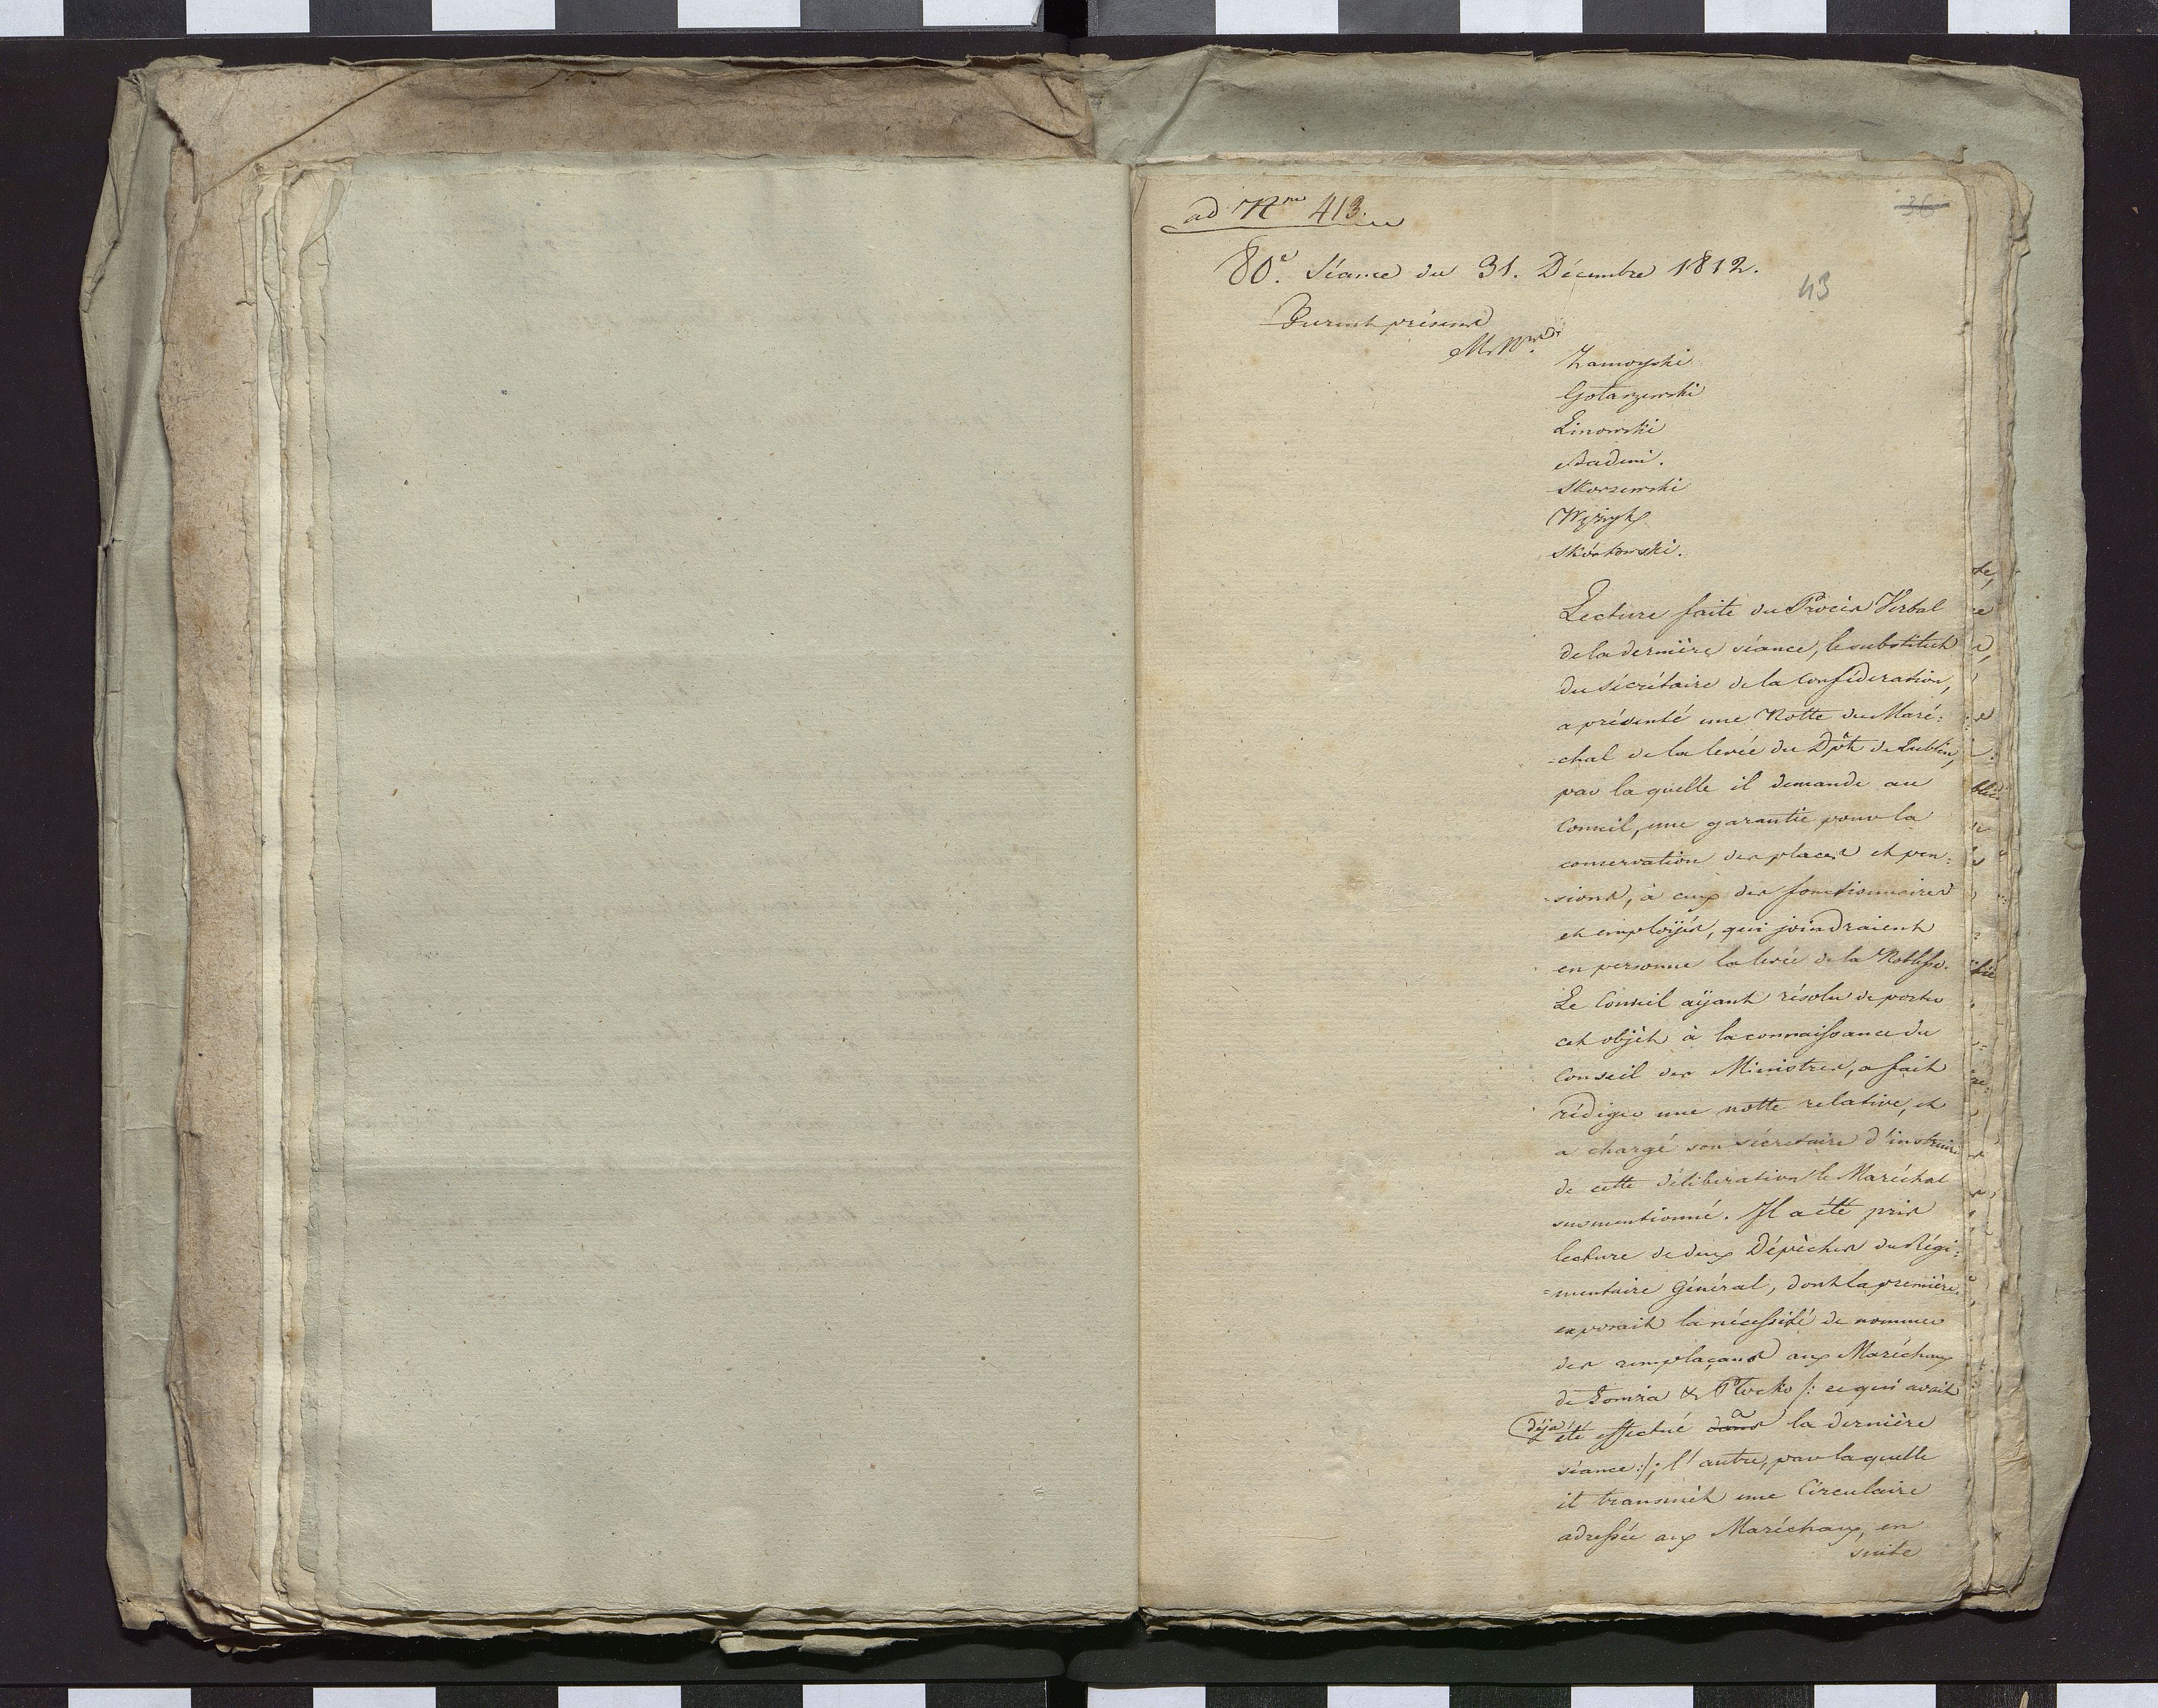 ad Nrm 413.
36
80e. Séance du 31. Décembre 1812.
43
Furent présens
Mrs Nrds
Zamoyski
Gołaszewski
Linowski
Badeni.
Skorzewski
Wężyk
Skórkowski.
Lecture faite du Procès Verbal
de la dernière séance, le substitut
du Sécrétaire de la Conféderation,
a présenté une Notte du Maré:
=chal de la levée du Dpt de Lublin,
par laquelle il demande au
Conseil, une garantie pour la
conservation des places et pen:
=sions, à ceux des fonctionnaires
et emploÿés, qui joindraient
en personne la levée de la Noblesse.
Le Conseil aÿant résolu de porter
cet objèt à la connaissance du
Conseil des Ministres, a fait
rédiger une notte relative, et
a chargé son sécretaire d'instruire
de cette déliberation le Maréchal
susmentionné. Il a été pris
lecture de deux Dépèches du Régi:
=mentaire Général, dont la première
exposait la nécessité de nommer
des remplaçans aux Maréchaux
de Łomża & Płocko /: ce qui avait
déja été effectué dans a la dernière
séance :/; l'autre, par laquelle
il transmèt une Circulaire
adressée aux Maréchaux, en
suite